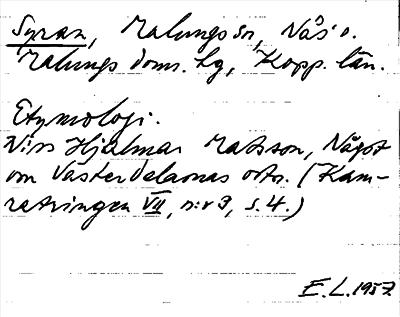 Syran, Malungs sn, Nås o.
Malungs doms. hg, Kopp. län.
Etymologi.
Viss Hjalmar Matsson, Något
om Västerdalarnas ortn. (Kam-
ratringen VII, n:r 9, s. 4.)
E. L. 1957.